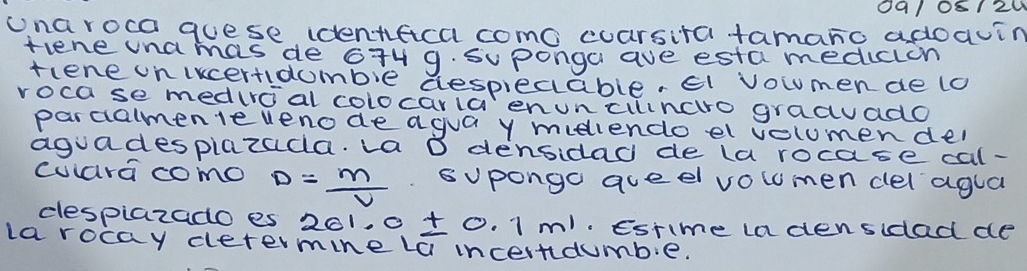 09/05/20
Una roca que se identifica como cuarsita tamaño adoquín
tiene una mas de 674 g. Suponga que esta medición
tiene un incertidumbre despreciable. El volumen de lo
roca se medirá al colocarla en un cilindro graduado
parcialmente lleno de agua y midiendo el volumen del
agua desplazada. La D densidad de la roca se cal-
culará como D = m/v. Supongo que el volumen del agua
desplazado es 261.0 ± 0.1 ml. Estime la densidad de
la roca y determine la incertidumbre.